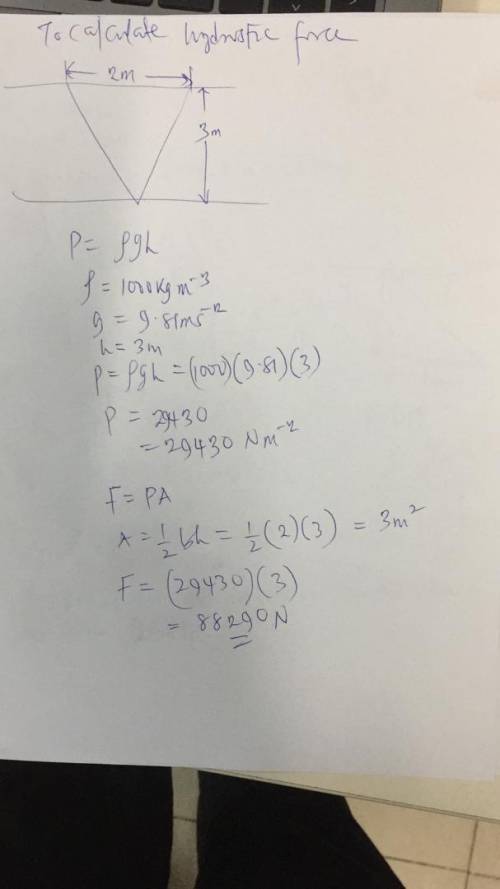 To calculate hydrostic force
2m
3m
P = ρgh
ρ = 1000kgm⁻³
g = 9.81ms⁻²
h = 3m
P = ρgh = (1000)(9.81)(3)
P = 29430
= 29430 Nm⁻²
F = PA
A = ½bh = ½(2)(3) = 3m²
F = (29430)(3)
= 88290N